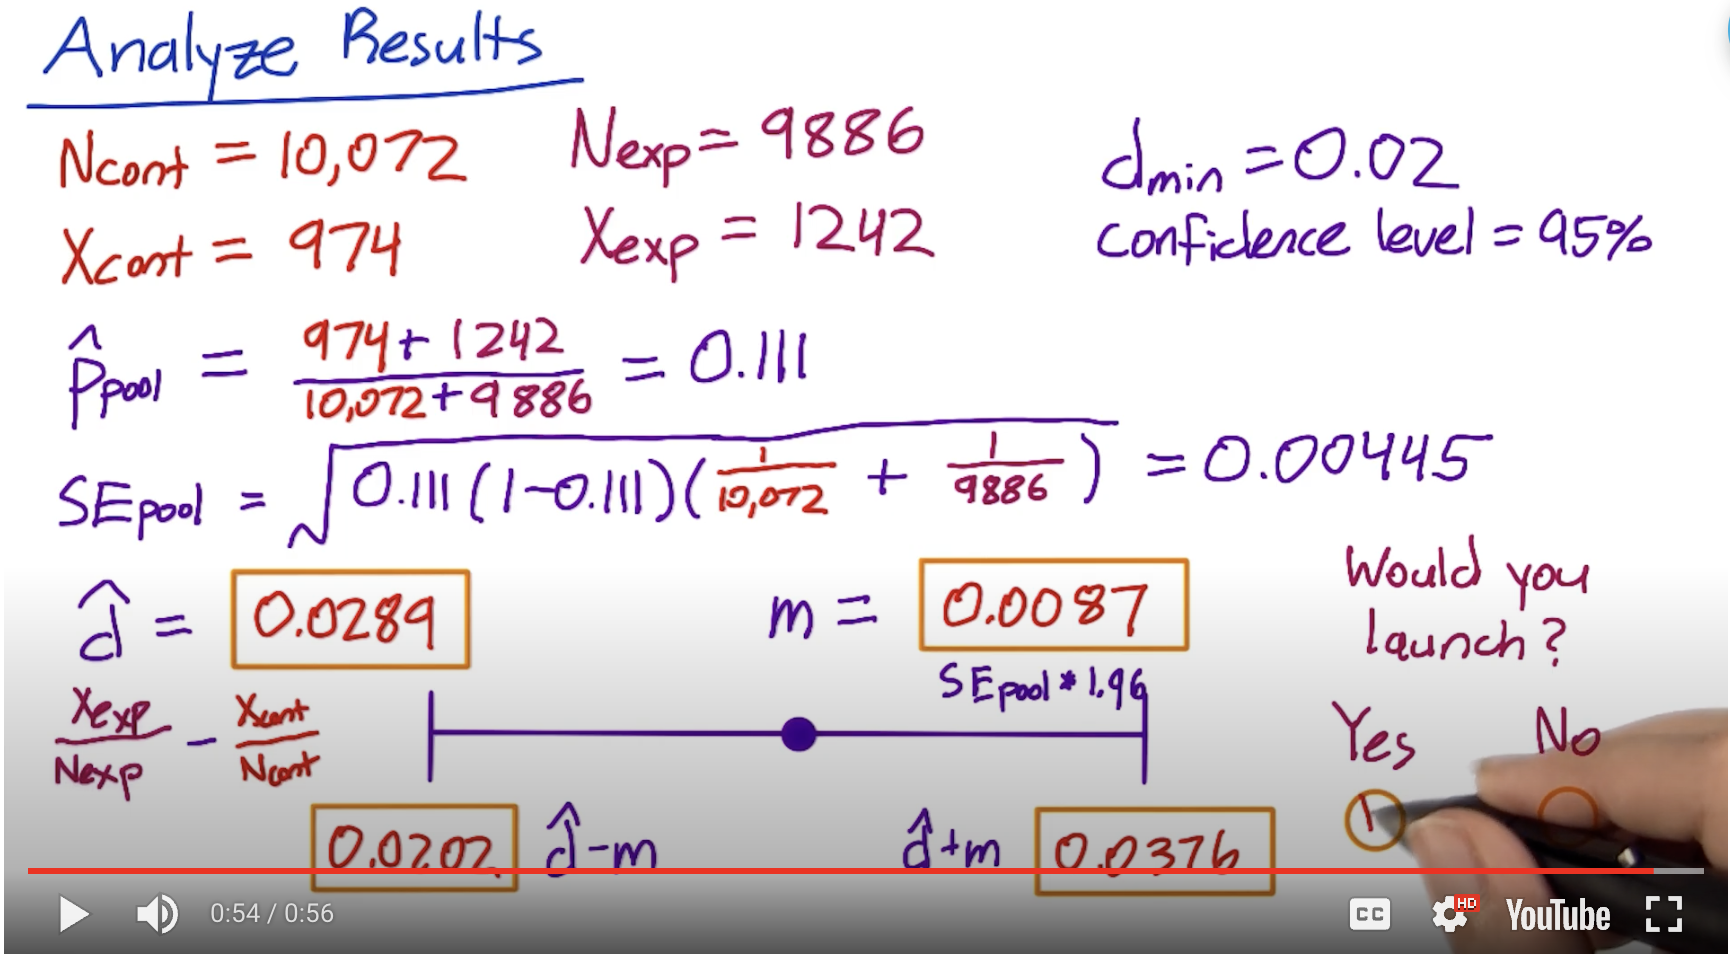 Analyze Results
Ncont = 10,072
Xcont = 974
Nexp = 9886
Xexp = 1242
dmin = 0.02
confidence level = 95%
p̂pool = (974 + 1242) / (10,072 + 9886) = 0.111
SEpool = √(0.111 (1-0.111)(1/10,072 + 1/9886)) = 0.00445
d̂ = 0.0289
Xexp/Nexp - Xcont/Ncont
m = 0.0087
SEpool * 1.96
0.0202 d̂-m
d̂+m 0.0376
Would you
launch?
Yes No
0:54 / 0:56
CC
HD
YouTube